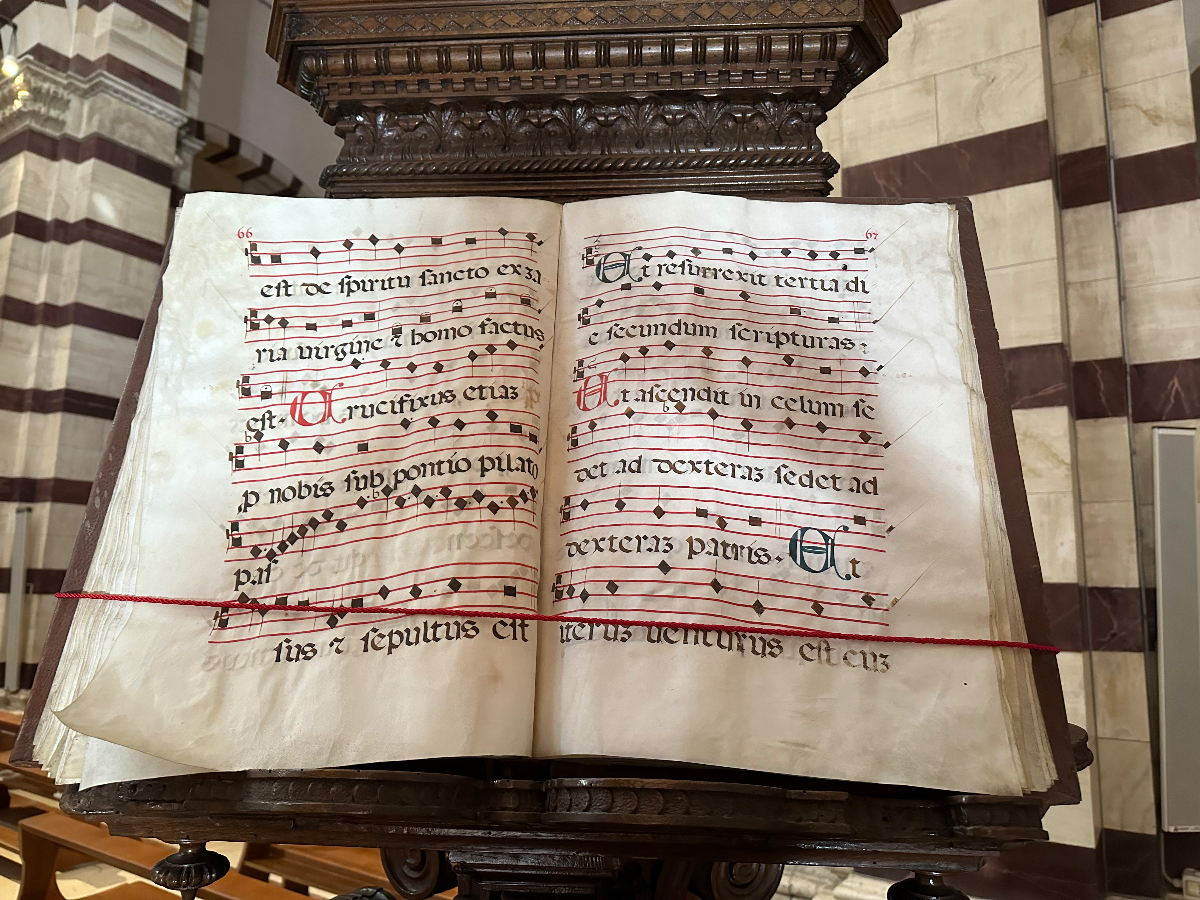 66
est de spiritu sancto ex ʒa
ria uirgine ⁊ homo factus
est. Crucifixus etiaʒ
ꝓ nobis sub pontio pilato
pas
sus ⁊ sepultus est
67
Et resurrexit tertia di
e secundum scripturas.
Et ascendit in celum se
det ad dexteraʒ sedet ad
dexteraʒ patris. Et
iteruʒ uenturus est cuʒ